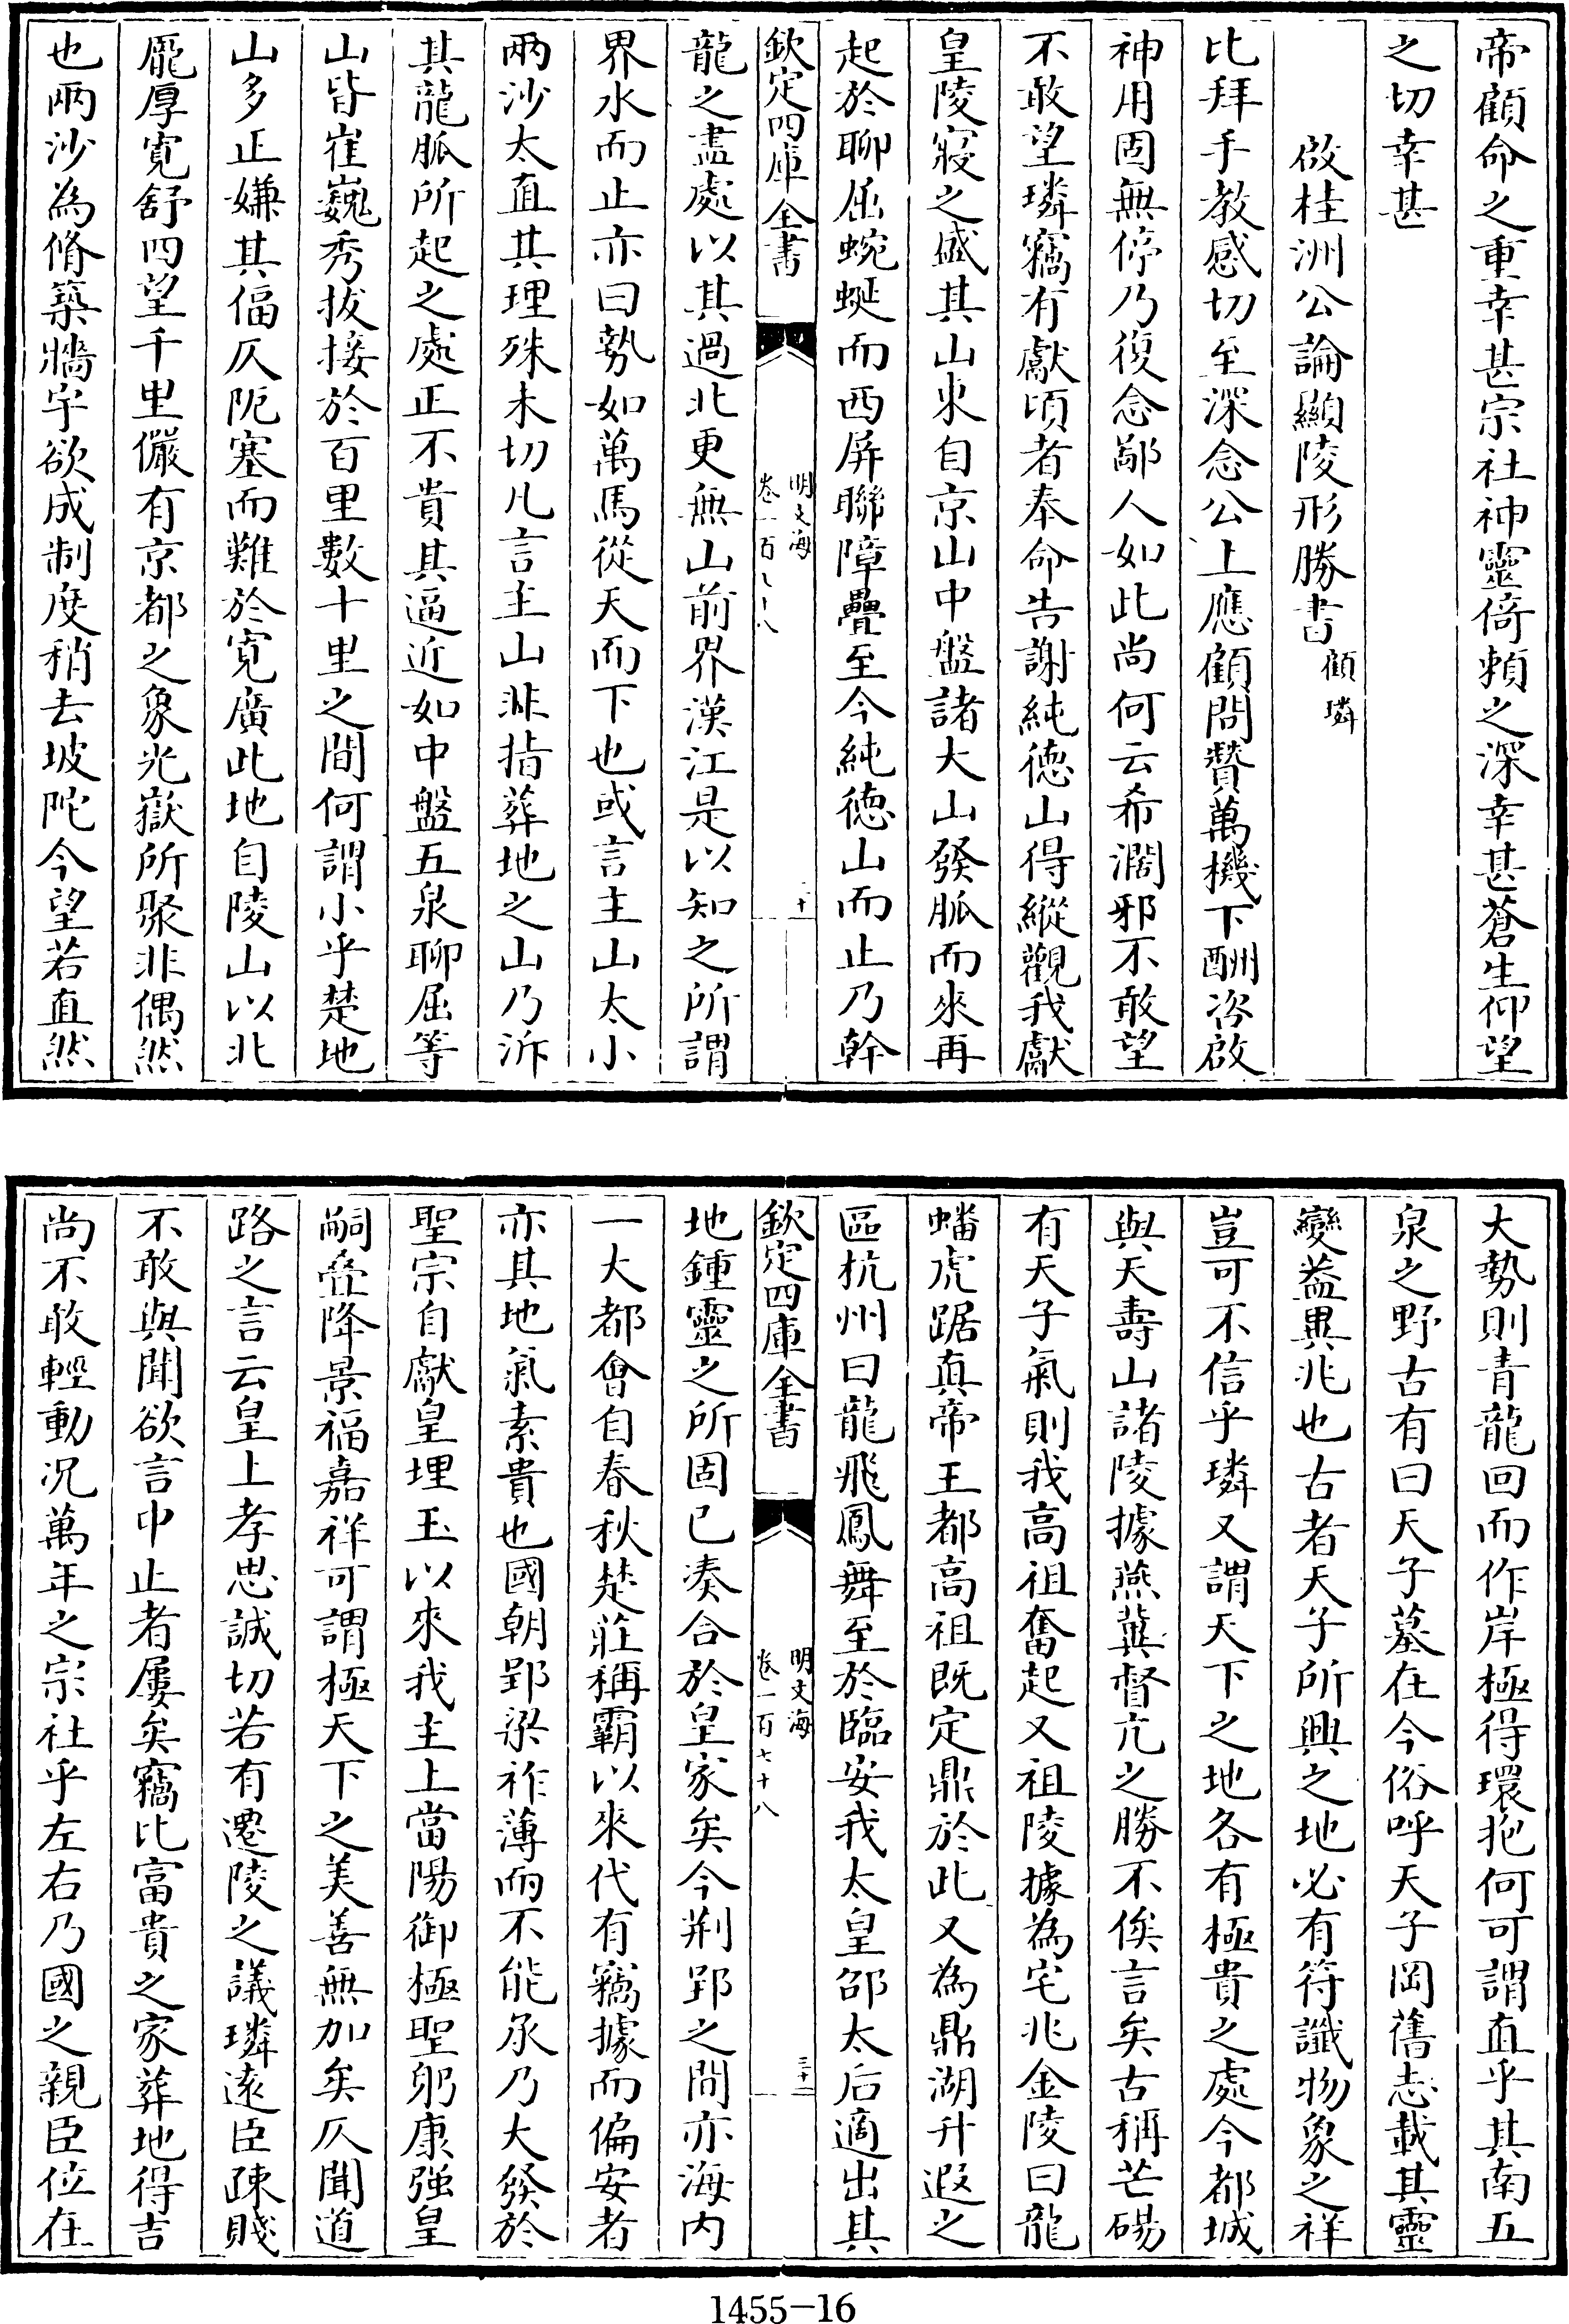 帝顧命之重幸甚宗社神靈倚賴之深幸甚蒼生仰望
之切幸甚
啟桂洲公論顯陵形勝書 顧璘
比拜手教感切至深念公上應顧問贊萬機下酬咨啟
神用固無停乃復念鄙人如此尚何云希濶邪不敢望
不敢望璘竊有獻頃者奉命告謝純德山得縱觀我獻
皇陵寢之盛其山來自京山中盤諸大山發脈而來再
起於聊屈蜿蜒而西屏聯障疊至今純德山而止乃幹
欽定四庫全書
明文海
卷一百七十八
三十
龍之盡處以其過北更無山前界漢江是以知之所謂
界水而止亦曰勢如萬馬從天而下也或言主山太小
兩沙太直其理殊未切凡言主山非指葬地之山乃泝
其龍脈所起之處正不貴其逼近如中盤五泉聊屈等
山皆崔巍秀拔接於百里數十里之間何謂小乎楚地
山多正嫌其偪仄阨塞而難於寛廣此地自陵山以北
龐厚寛舒四望千里儼有京都之象光嶽所聚非偶然
也兩沙為脩築牆宇欲成制度稍去坡陀今望若直然
大勢則青龍回而作岸極得環抱何可謂直乎其南五
泉之野古有曰天子墓在今俗呼天子岡舊志載其靈
變益異兆也古者天子所興之地必有符讖物象之祥
豈可不信乎璘又謂天下之地各有極貴之處今都城
與天壽山諸陵據燕冀督亢之勝不俟言矣古稱芒碭
有天子氣則我高祖奮起又祖陵據為宅兆金陵曰龍
蟠虎踞真帝王都高祖既定鼎於此又為鼎湖升遐之
區杭州曰龍飛鳳舞至於臨安我太皇邵太后適出其
欽定四庫全書
明文海
卷一百七十八
三十一
地鍾靈之所固已凑合於皇家矣今荆郢之間亦海内
一大都會自春秋楚莊稱霸以來代有竊據而偏安者
亦其地氣素貴也國朝郢梁祚薄而不能承乃大發於
聖宗自獻皇埋玉以來我主上當陽御極聖躬康强皇
嗣疊降景福嘉祥可謂極天下之美善無加矣仄聞道
路之言云皇上孝思誠切若有遷陵之議璘逺臣疎賤
不敢與聞欲言中止者屢矣竊比富貴之家葬地得吉
尚不敢輕動况萬年之宗社乎左右乃國之親臣位在
1455-16